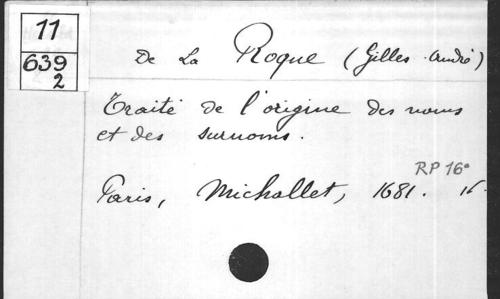 11
639
2
De La Roque (Gilles-André)
Traité de l'origine des noms
et des surnoms.
RP 16°
Paris, Michallet, 1681.